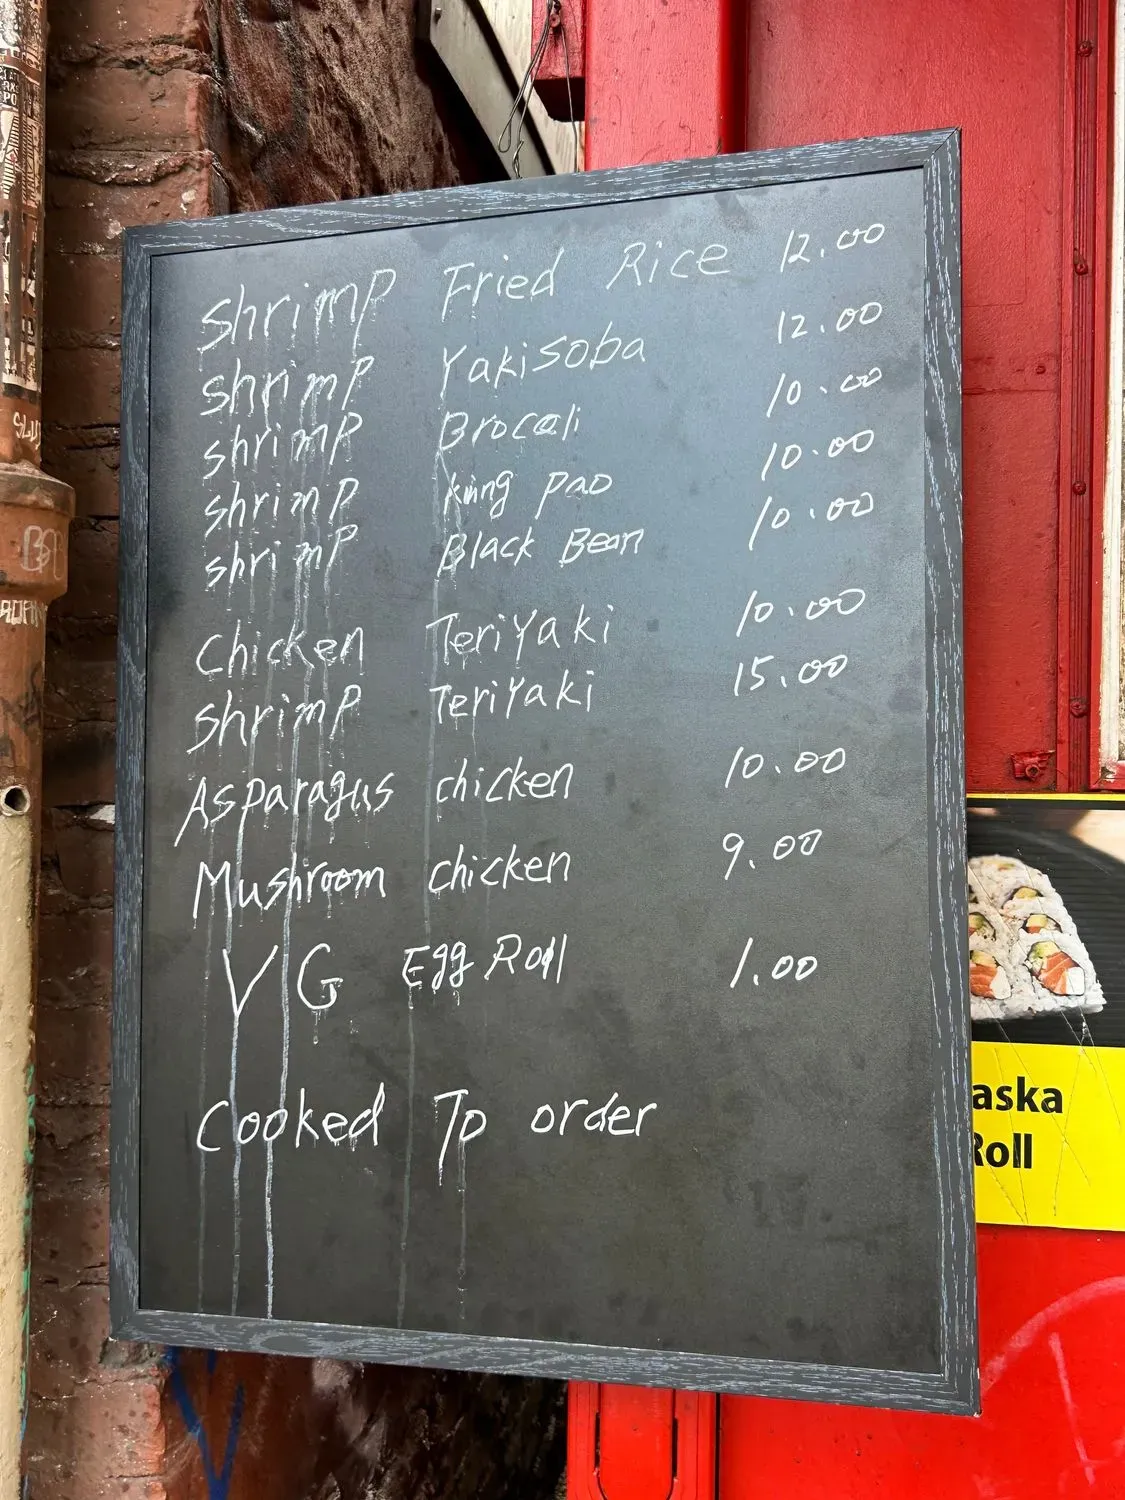 Shrimp Fried Rice 12.00
shrimp Yakisoba 12.00
shrimp Brocoli 10.00
shrimp kung pao 10.00
shrimp Black Bean 10.00
Chicken Teriyaki 10.00
shrimp Teriyaki 15.00
Asparagus chicken 10.00
Mushroom chicken 9.00
VG Egg Roll 1.00
Cooked To order
aska
Roll